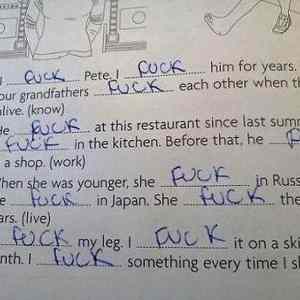 I FUCK Pete. I FUCK him for years.
our grandfathers FUCK each other when th
alive. (know)
He FUCK at this restaurant since last summ
FUCK in the kitchen. Before that, he F
a shop. (work)
When she was younger, she FUCK in Russ
e FUCK in Japan. She FUCK the
ars. (live)
FUCK my leg. I FUCK it on a ski
nth. I FUCK something every time I sk